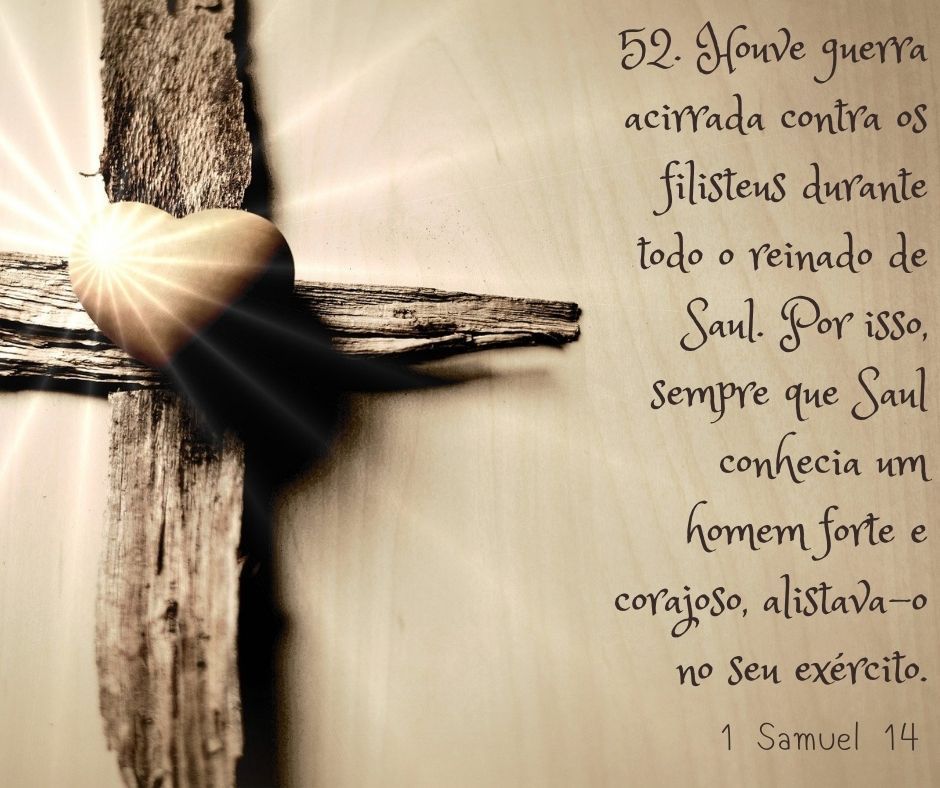 52. Houve guerra
acirrada contra os
filisteus durante
todo o reinado de
Saul. Por isso,
sempre que Saul
conhecia um
homem forte e
corajoso, alistava-o
no seu exército.
1 Samuel 14